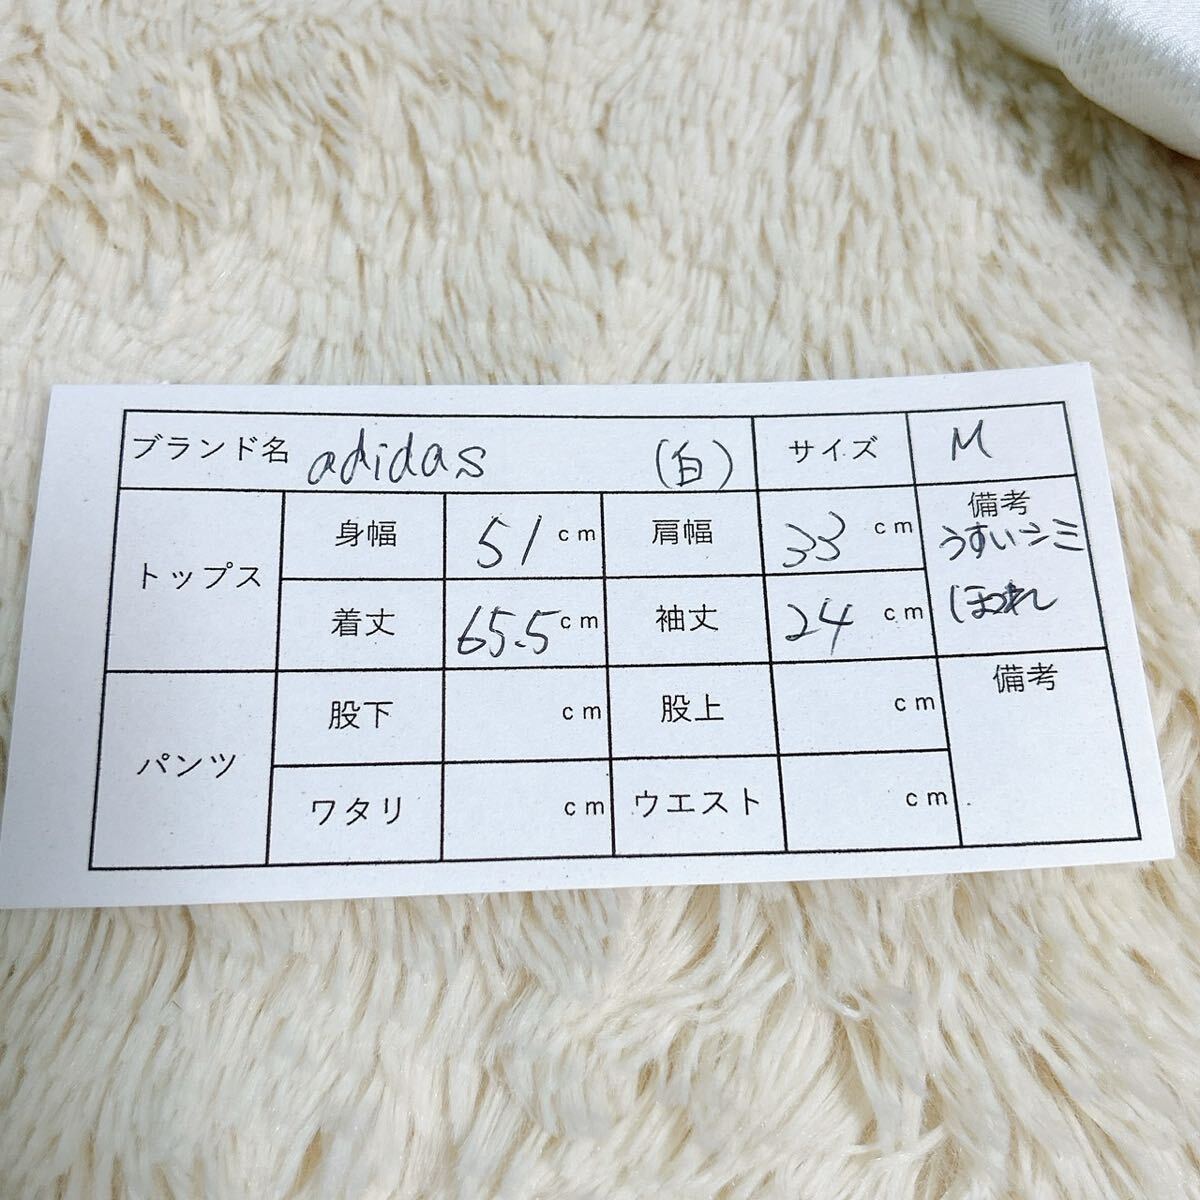 ブランド名 adidas (白) サイズ M
トップス 身幅 51 cm 肩幅 33 cm 備考
うすいシミ
着丈 65.5 cm 袖丈 24 cm ほつれ
パンツ 股下 cm 股上 cm 備考
ワタリ cm ウエスト cm